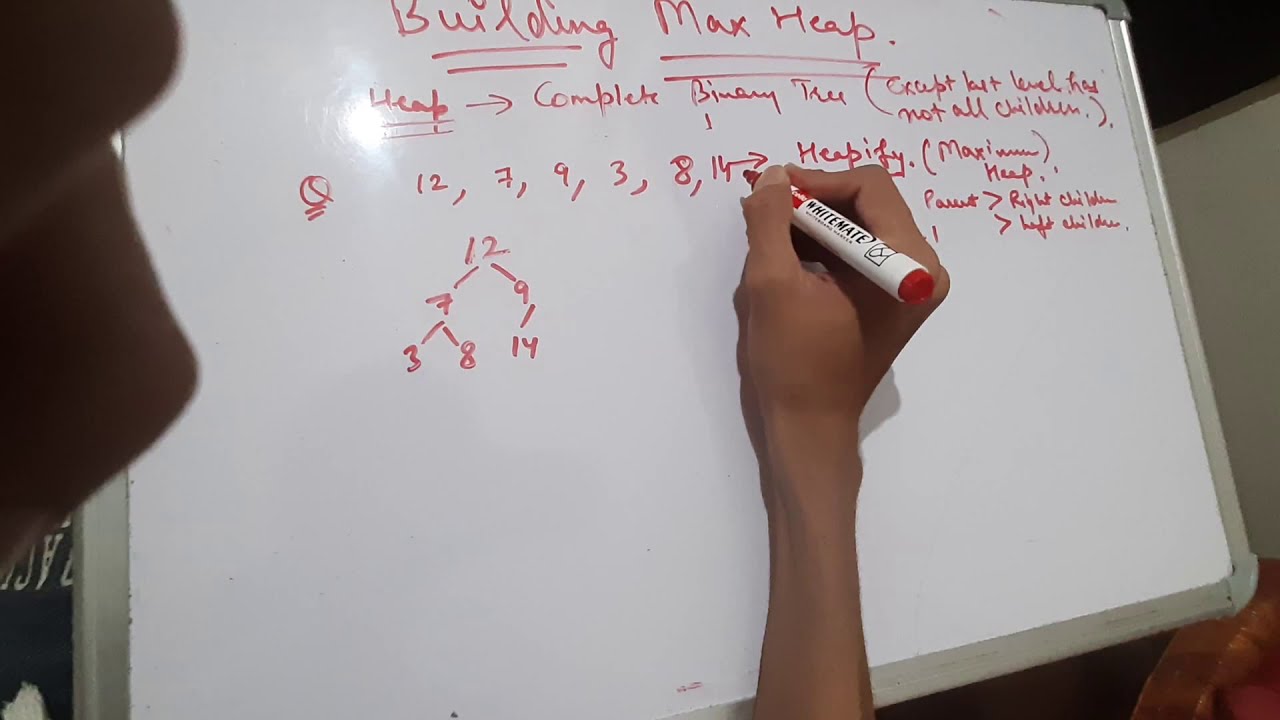 Building Max Heap.
Heap → Complete Binary Tree (Except last level has
not all children.).
Q 12, 7, 9, 3, 8, 14 → Heapify. (Maximum)
Heap.
Parent > Right children
> Left children.
12
7 9
3 8 14
WHITEMATE